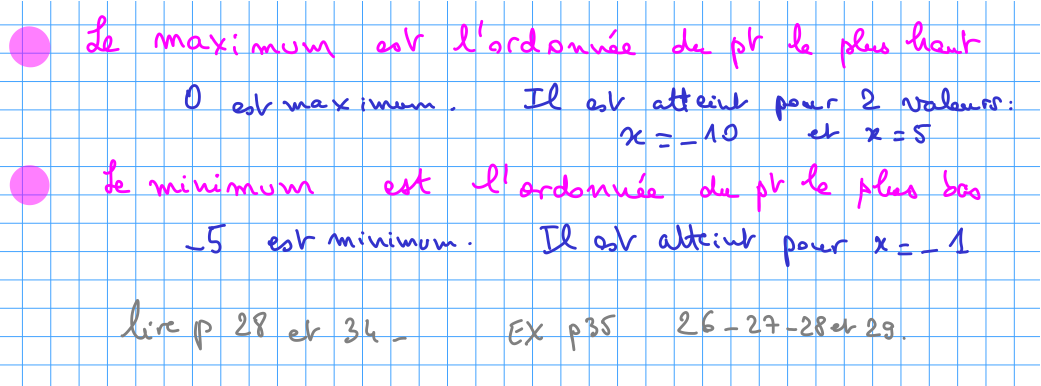 Le maximum est l'ordonnée du pt le plus haut
0 est maximum. Il est atteint pour 2 valeurs:
x = -10 et x = 5
Le minimum est l'ordonnée du pt le plus bas
-5 est minimum. Il est atteint pour x = -1
lire p 28 et 34 - EX p35 26-27-28 et 29.